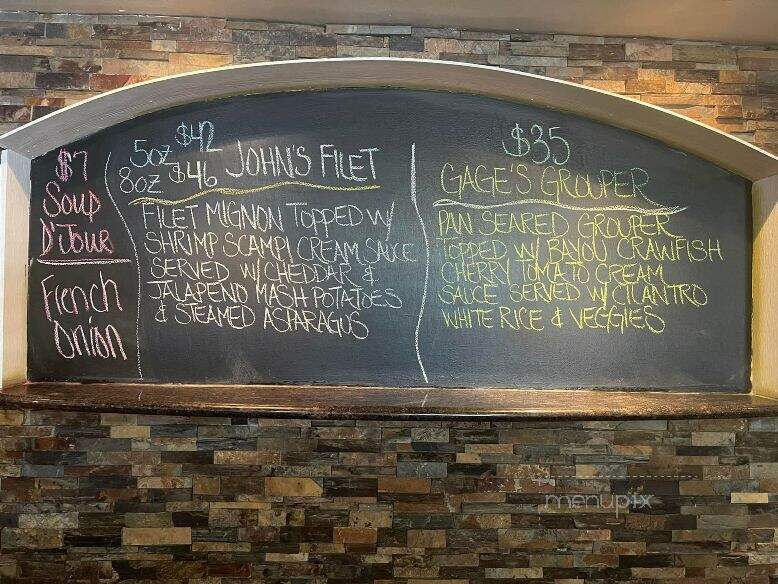 $7
Soup
D'Jour
French
Onion
5oz $42
8oz $46 JOHN'S FILET
FILET MIGNON TOPPED W/
SHRIMP SCAMPI CREAM SAUCE
SERVED W/ CHEDDAR &
JALAPENO MASH POTATOES
& STEAMED ASPARAGUS
$35
GAGE'S GROUPER
PAN SEARED GROUPER
TOPPED W/ BAYOU CRAWFISH
CHERRY TOMATO CREAM
SAUCE SERVED W/ CILANTRO
WHITE RICE & VEGGIES
menupix